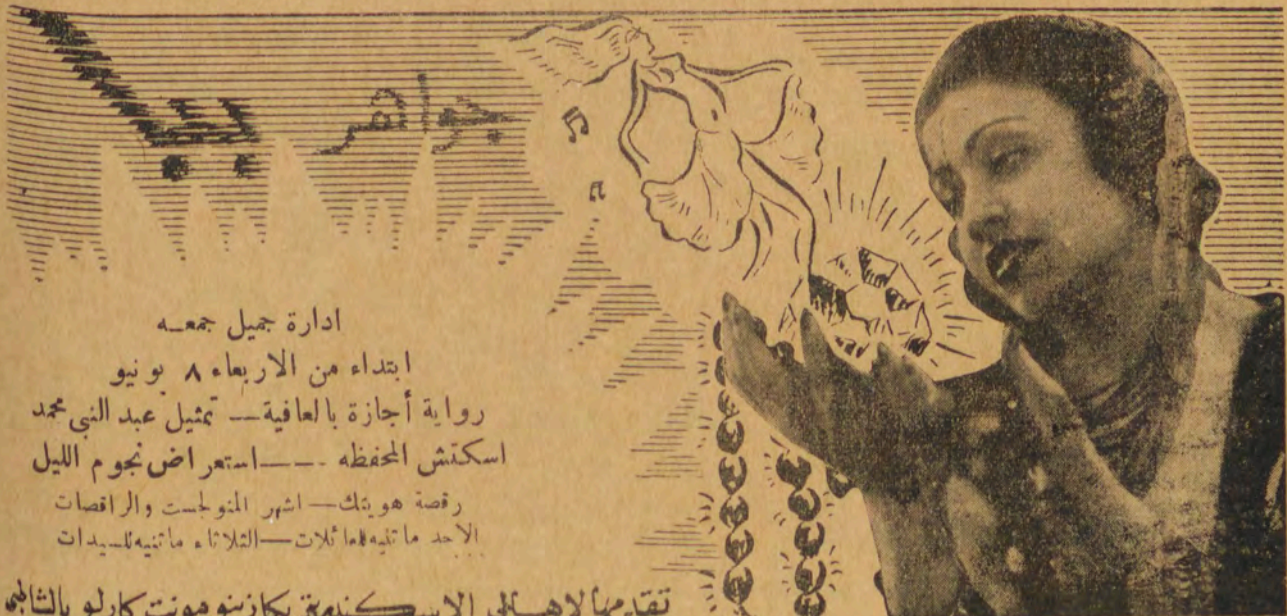 جواهر ببا
ادارة جميل جمعه
ابتداء من الاربعاء ٨ يونيو
رواية أجازة بالعافية — تمثيل عبد النبي محمد
اسكتش المحفظه — استعراض نجوم الليل
رقصة هويتك — اشهر المنولجست والراقصات
الأحد ماتنيه للعائلات — الثلاثاء ماتنيه للسيدات
تقدمها لاهالى الاسكندرية بكازينو مونت كارلو بالشاطبى